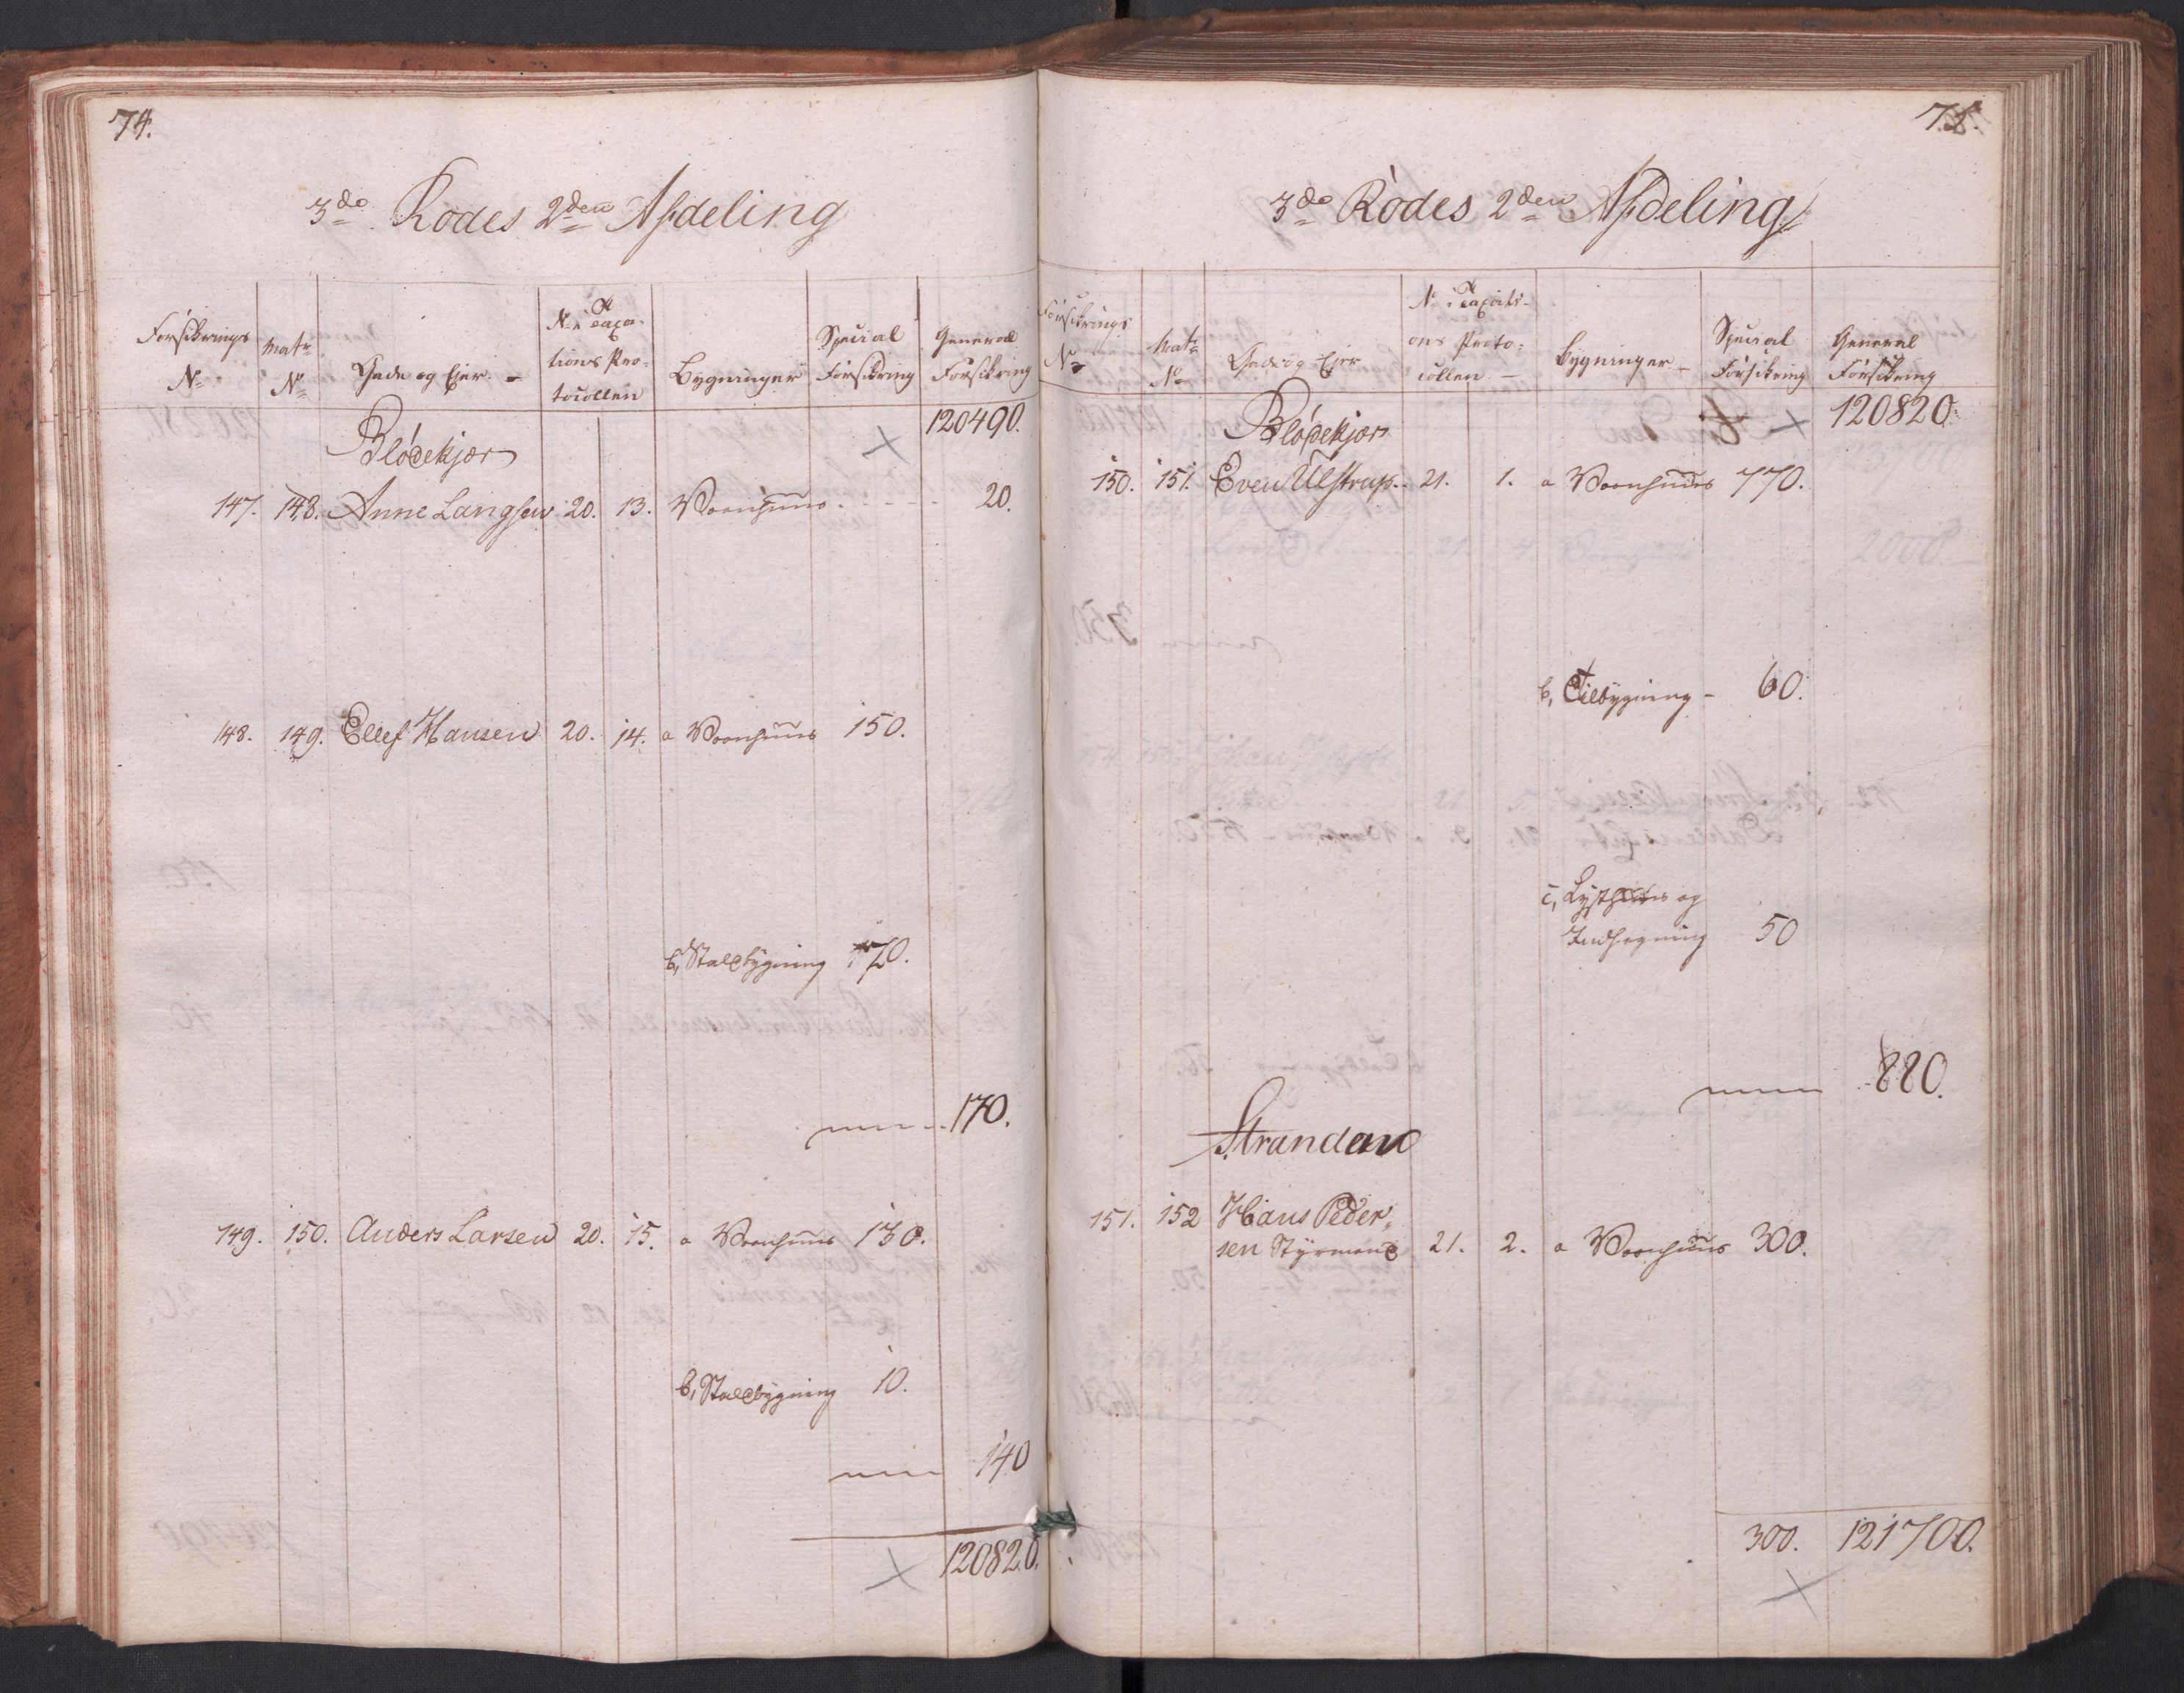 74.
3do Rodes 2den Afdeling
Forsikrings No
Matr No
Gade og Ejer
No i Taxationens Protocollen
Bygninger
Special Forsikring
General Forsikring
Blödekjær
120490.
147. 148. Anne Langsew 20. 13. Vaanhuus 20.
148. 149. Ellef Hansen 20. 14. a Vaanhuus 150.
b, Staldbygning 20.
170.
149. 150. Anders Larsen 20. 15. a Vaanhuus 130.
b, Staldbygning 10.
140
120820.
75.
3do Rodes 2den Afdeling
Forsikrings No
Matr No
Gade og Ejer
No i Taxations Protocollen
Bygninger
Special Forsikring
General Forsikring
Blödekjær
120820.
150. 151. Even Ulstrup 21. 1. a Vaanhuus 770.
b, Tilbygning 60.
c, Lysthuus og
Indhegning 50
880.
Stranden
151. 152 Hans Peder-
sen Styrmand 21. 2. a Vaanhuus 300.
300. 121700.